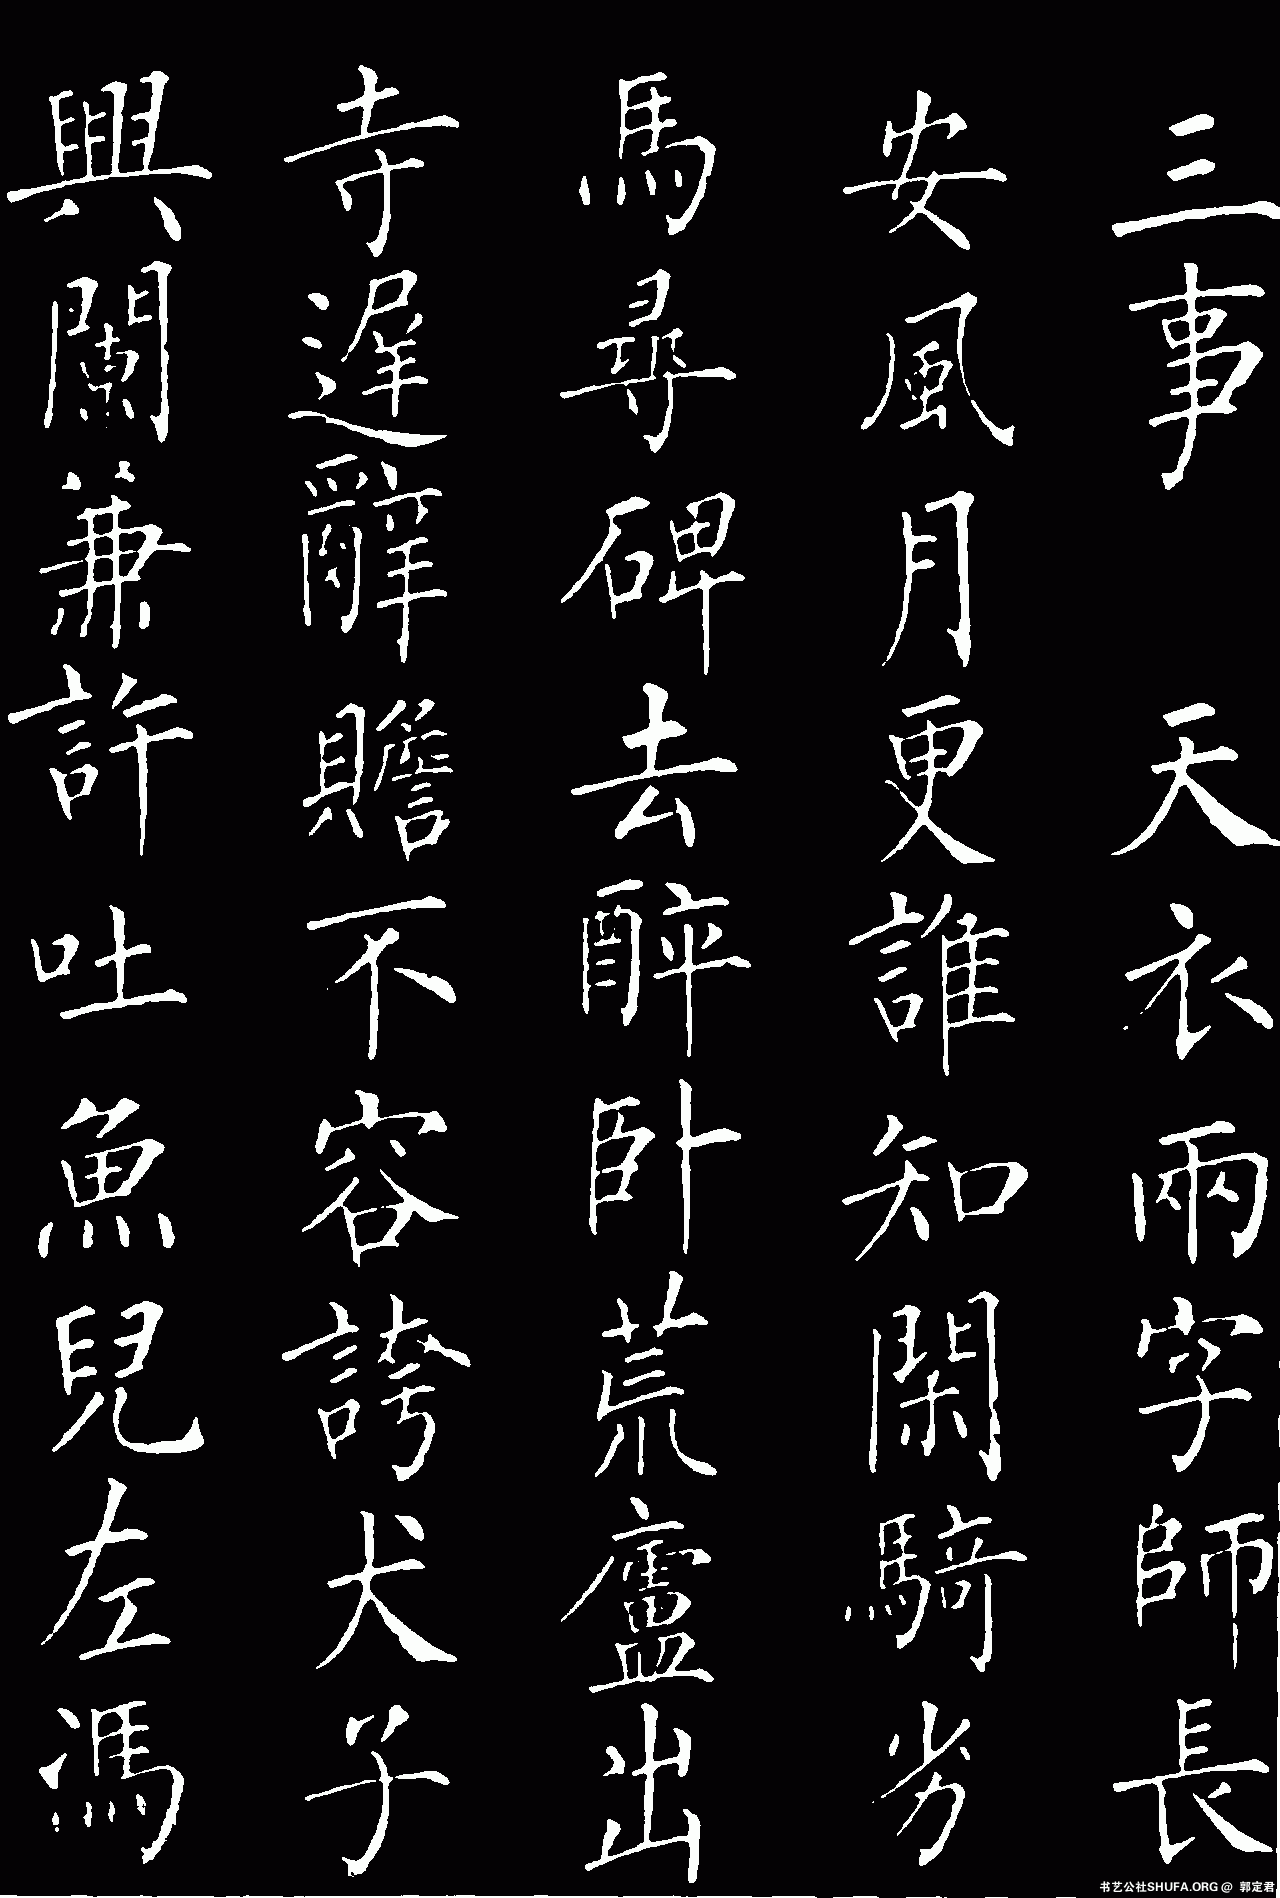 三事 天衣兩字師長
安風月更誰知閑騎劣
馬尋碑去醉卧荒廬出
寺遲辭贍不容誇犬子
興闌兼許吐魚兒左馮
书艺公社SHUFA.ORG @ 郭定君